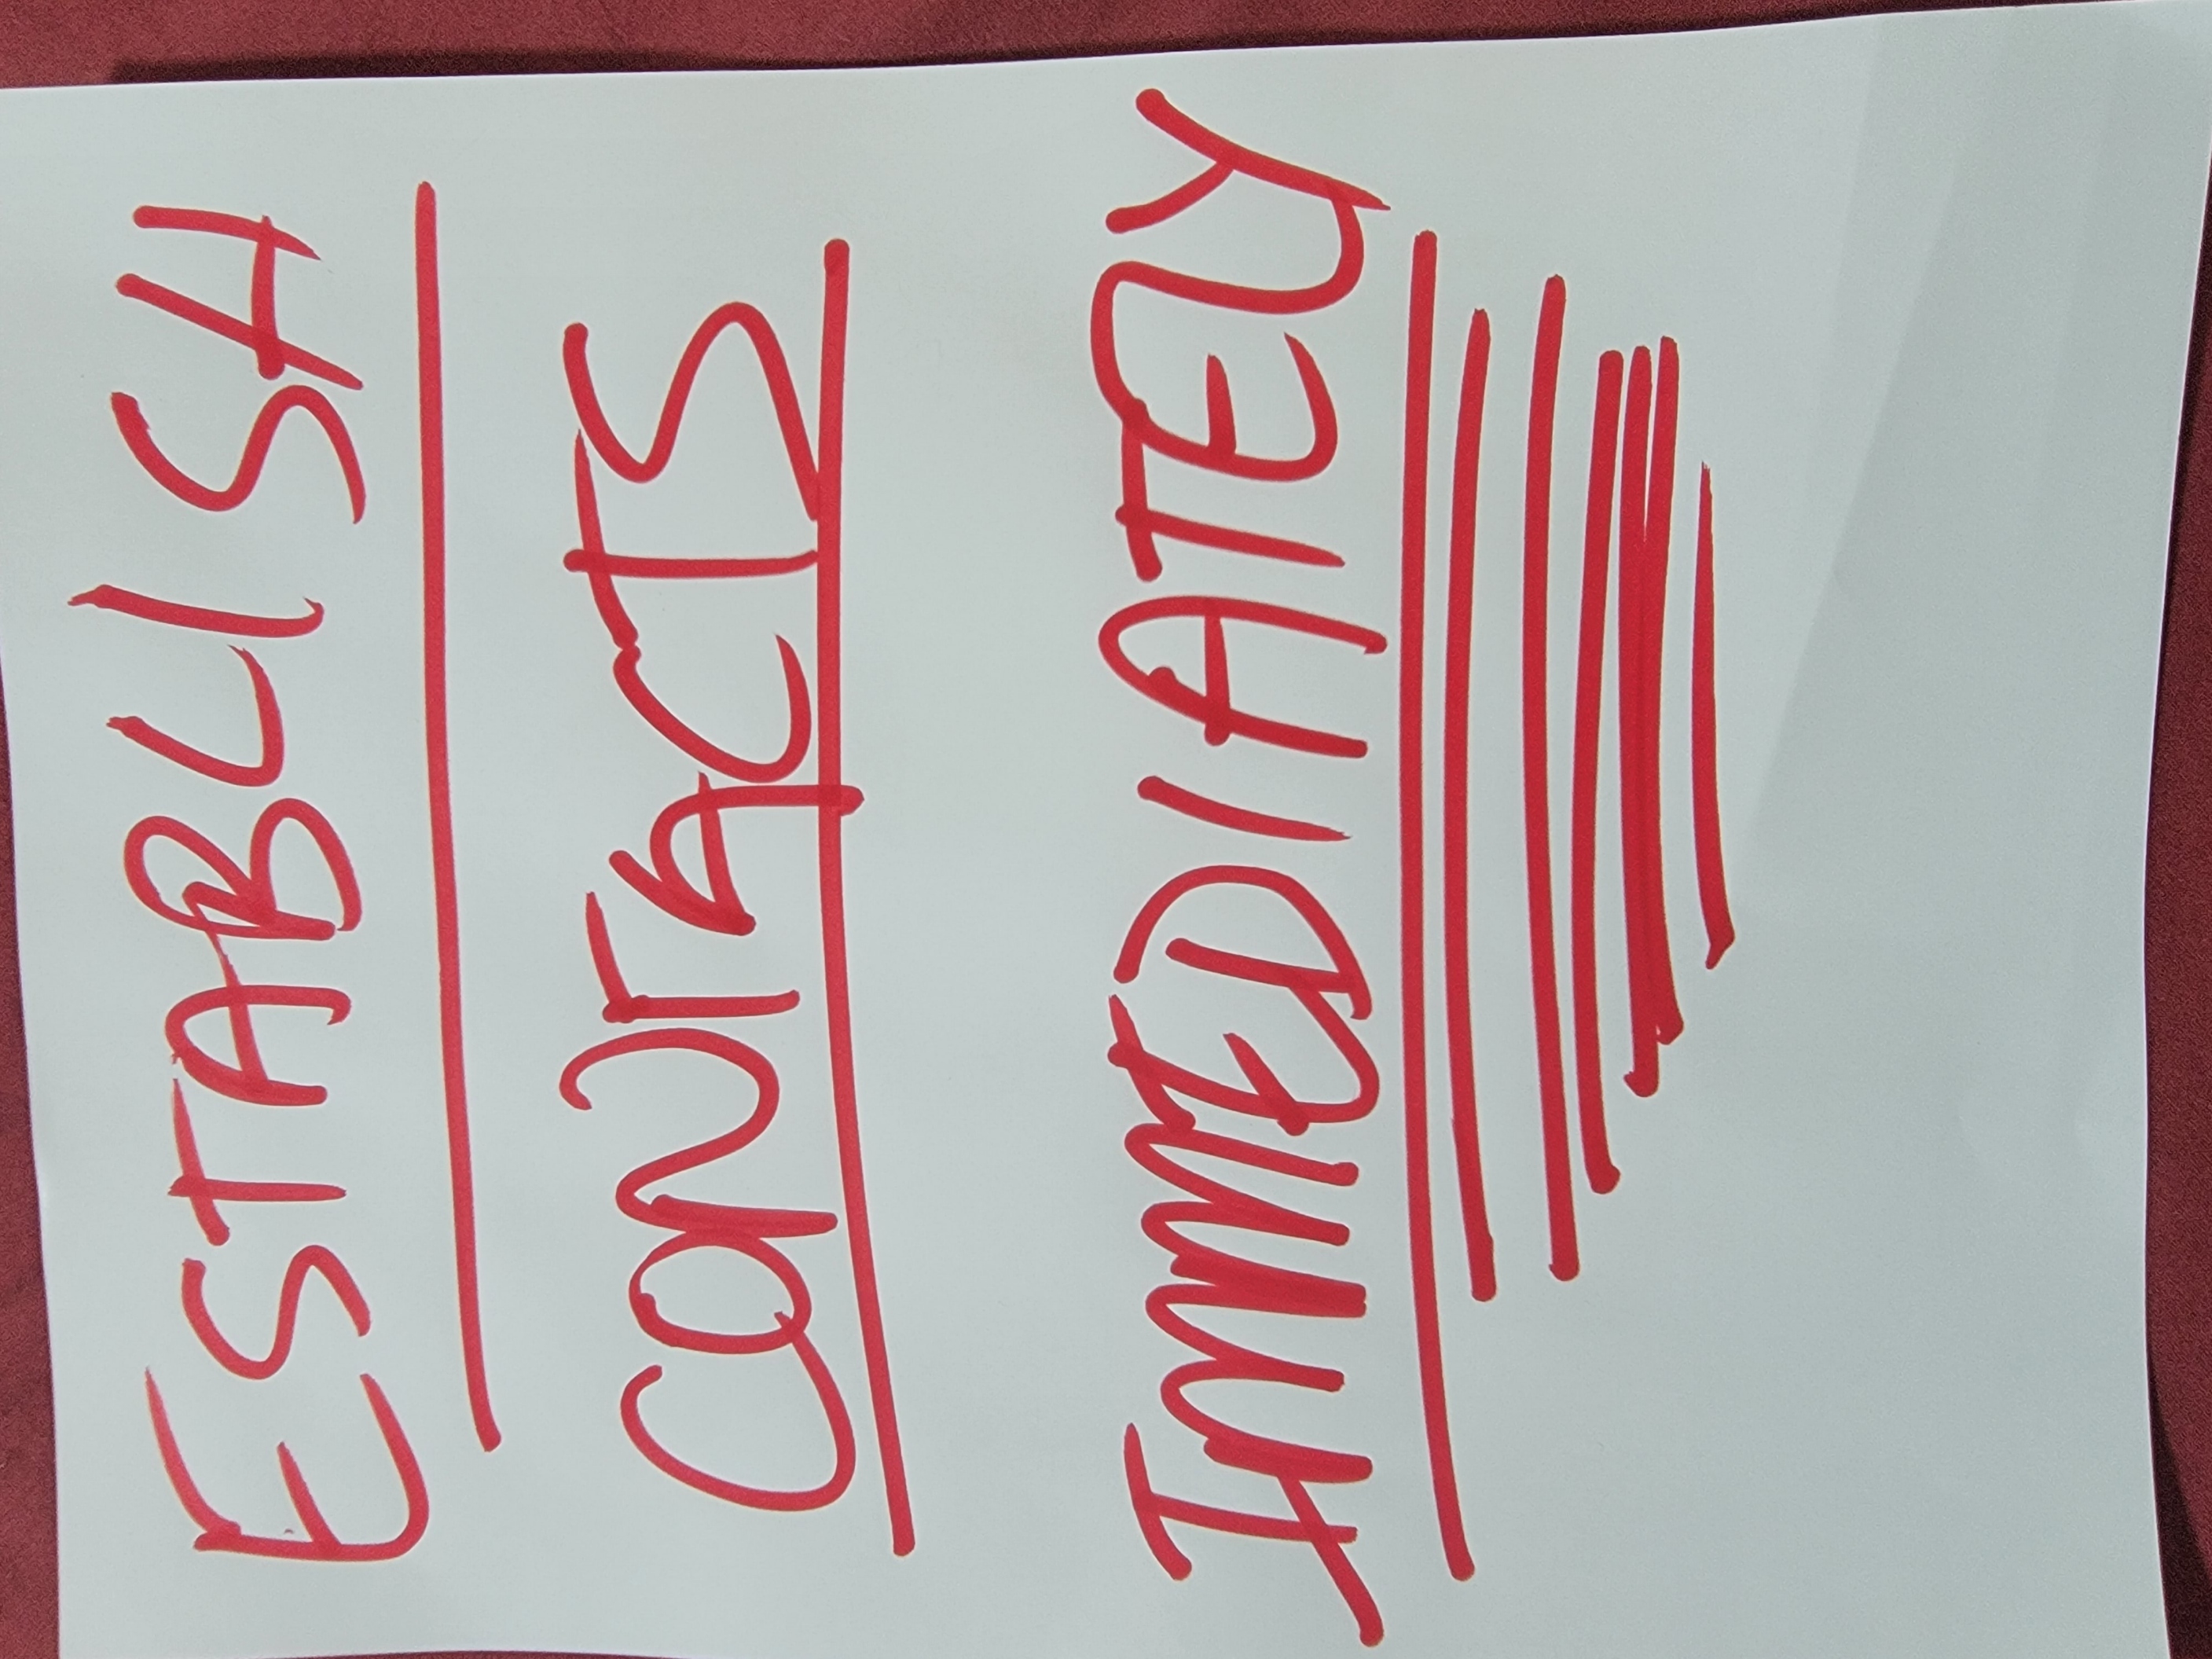 ESTABLISH
CONTACTS
IMMEDIATELY